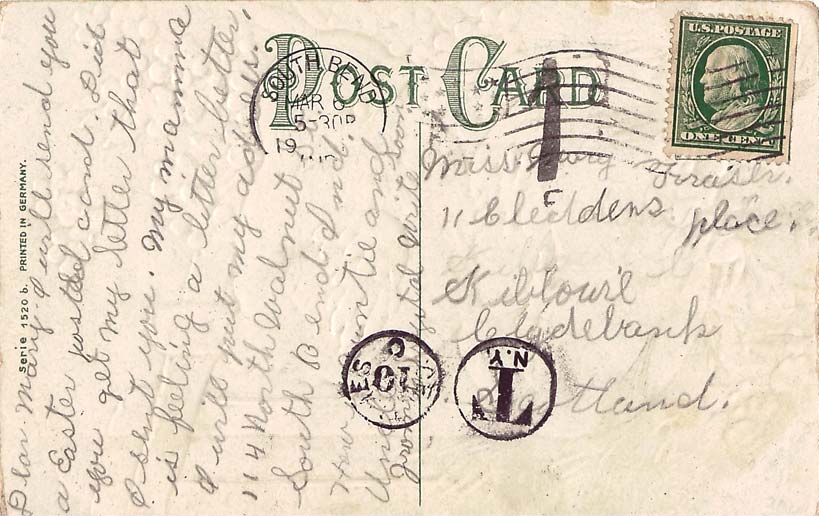 POST CARD
SOUTH BEND
MAR 6
5-30P
19
U.S. POSTAGE
ONE CENT
Serie 1520 b. PRINTED IN GERMANY.
Dear Mary I will send you
a Easter posted card. Did
you get my letter that
I sent you. My mamma
is feeling a litter better.
I will put my adress.
114 North Walnut
South Bend Ind.
How auntie and
Uncle
from write soon
Miss Mary Fraser.
11 Cleddens place.
Kilbowie
Clydebank
Scotland.
10
N.Y.
T